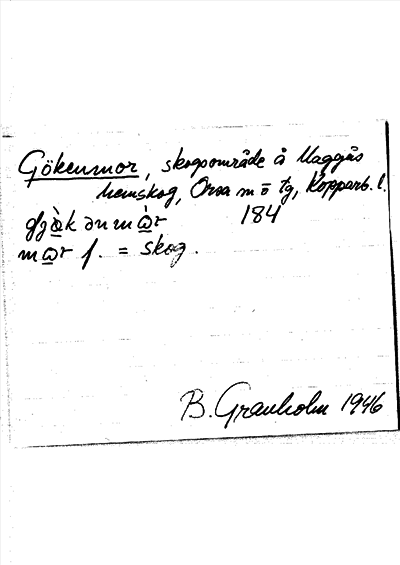 Gökenmor, skogsområde å Maggås
hemskog, Orsa m o tg, Kopparb. l.
184
mωr f. = skog.
B. Granholm 1946